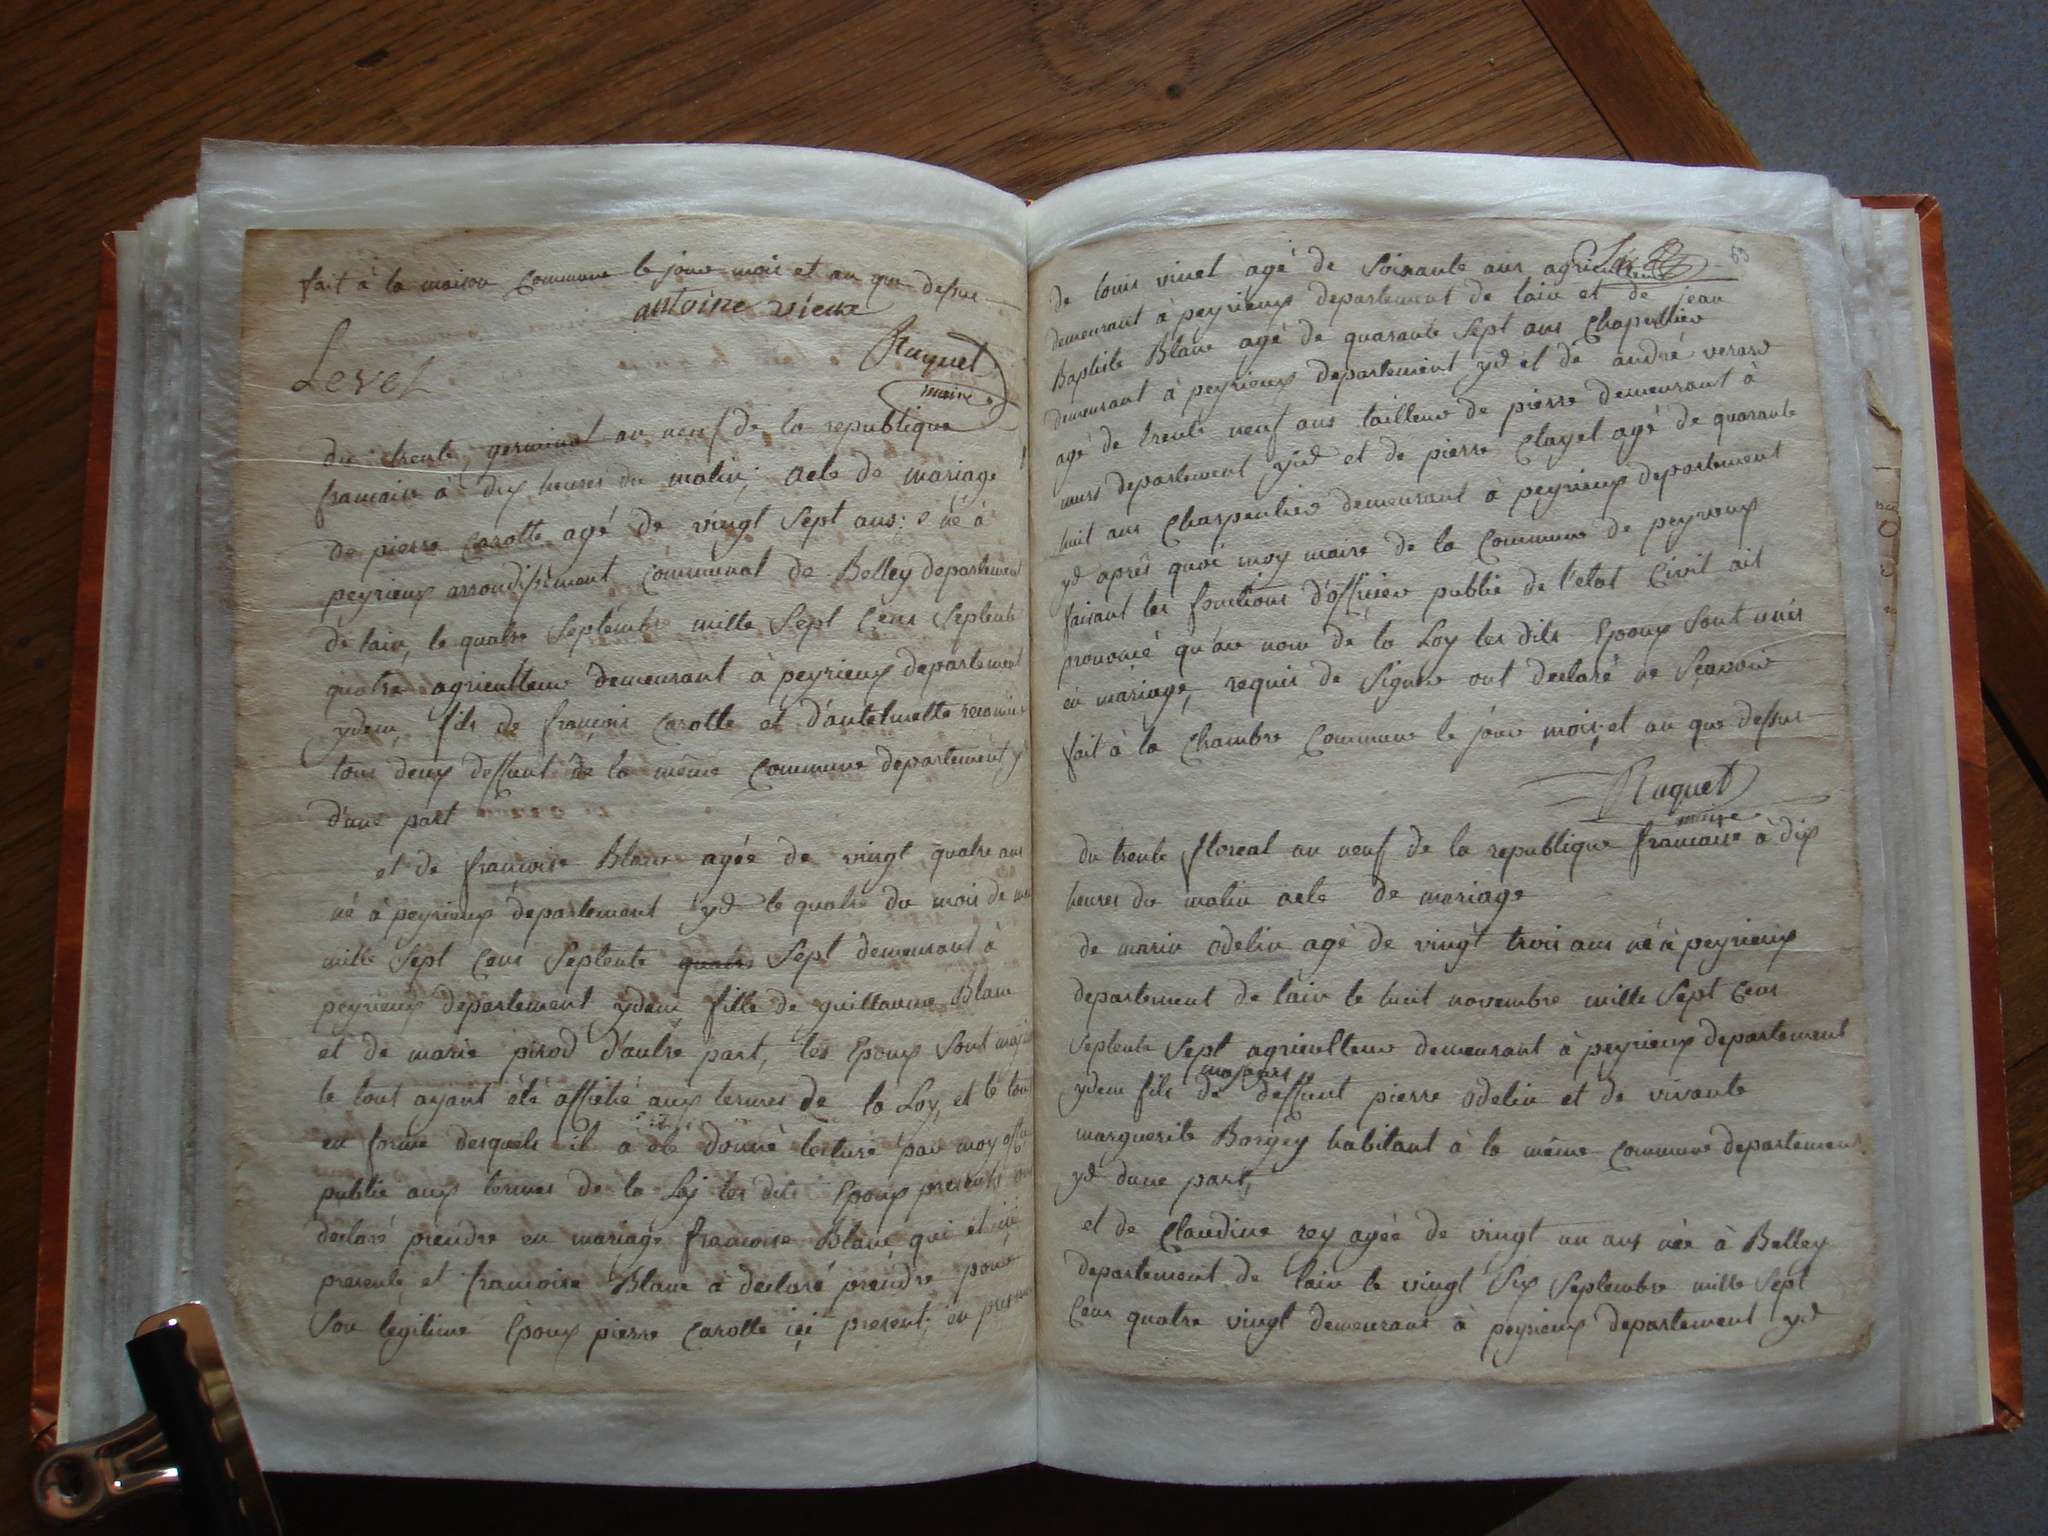 fait à la maison Commune le jour mois et an que dessus
antoine vieux
Level
Ruquet
maire
du trente germinal an neuf de la republique
francaise à dix heures du matin, acte de mariage
de pierre Carotte agé de vingt Sept ans: né à
peyrieux arrondissement Communal de Belley departement
de lain, le quatre Septembre mille Sept Cens Septente
quatre agriculteur demeurant à peyrieux departement
ydem, fils de françois Carotte et d'antelmette
tous deux deffunt de la même Commune departement yd
d'une part
et de francoise Blanc agée de vingt quatre ans
né à peyrieux departement yd le quatre du mois de
mille Sept Cens Septente quatre Sept demeurant à
peyrieux departement ydem, fille de guillaume Blanc
et de marie pirod d'autre part, les Epoux Sont
le tout ayant été affiché aux termes de la Loy, et le tout
en forme desquels il a été donné lecture par moy
public aux termes de la Loj les dits Epoux presents
declaré prendre en mariage francoise Blanc qui et ici
presente et francoise Blanc a declaré prendre pour
Son legitime Epoux pierre Carotte ici present, en
53
de louis vinet agé de Soixante ans agriculteur
demeurant à peyrieux departement de lain et de jean
Baptiste Blanc agé de quarante Sept ans Chapellier
demeurant à peyrieux departement yd et de andré
agé de trente neuf ans tailleur de pierre demeurant à
murs departement yd et de pierre Clayet agé de quarante
huit ans Charpentier demeurant à peyrieux departement
yd après quoi moy maire de la Commune de peyrieux
faisant les fonctions d'officier public de l'etat Civil ait
prononcé qu'au nom de la Loy les dits Epoux Sont unis
en mariage, requis de Signer ont declaré ne Sçavoir
fait à la Chambre Commune le jour mois et an que dessus
Ruquet
maire
du trente floreal an neuf de la republique francaise à dix
heures du matin acte de mariage
de marin odelin agé de vingt trois ans né à peyrieux
departement de lain le huit novembre mille Sept Cens
Septente Sept agriculteur demeurant à peyrieux departement
majeurs
ydem fils de deffunt pierre odelin et de vivante
marguerite Borgey habitant à la même Commune departement
yd dune part,
et de Claudine rey agée de vingt un ans née à Belley
departement de lain le vingt Six Septembre mille Sept
Cens quatre vingt demeurant à peyrieux departement yd